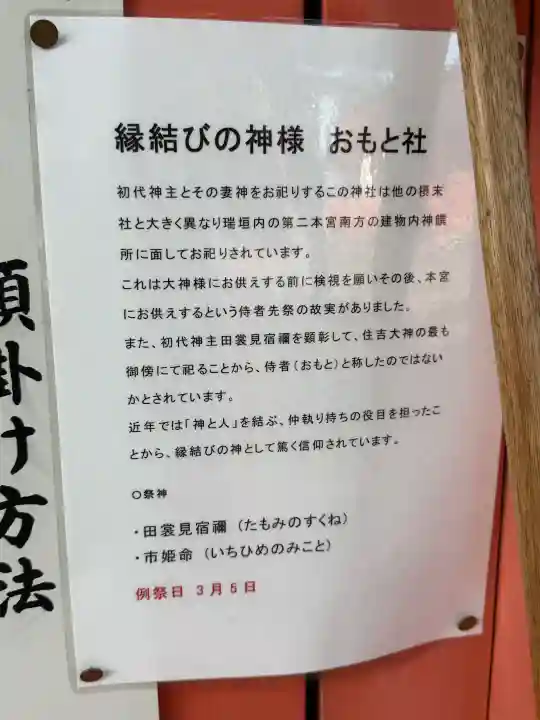 縁結びの神様 おもと社
初代神主とその妻神をお祀りするこの神社は他の摂末
社と大きく異なり瑞垣内の第二本宮南方の建物内神饌
所に面してお祀りされています。
これは大神様にお供えする前に検視を願いその後、本宮
にお供えするという侍者先祭の故実がありました。
また、初代神主田裳見宿禰を顕彰して、住吉大神の最も
御傍にて祀ることから、侍者（おもと）と称したのではない
かとされています。
近年では「神と人」を結ぶ、仲執り持ちの役目を担ったこ
とから、縁結びの神として篤く信仰されています。
○祭神
・田裳見宿禰（たもみのすくね）
・市姫命（いちひめのみこと）
例祭日 3月5日
掛け方法